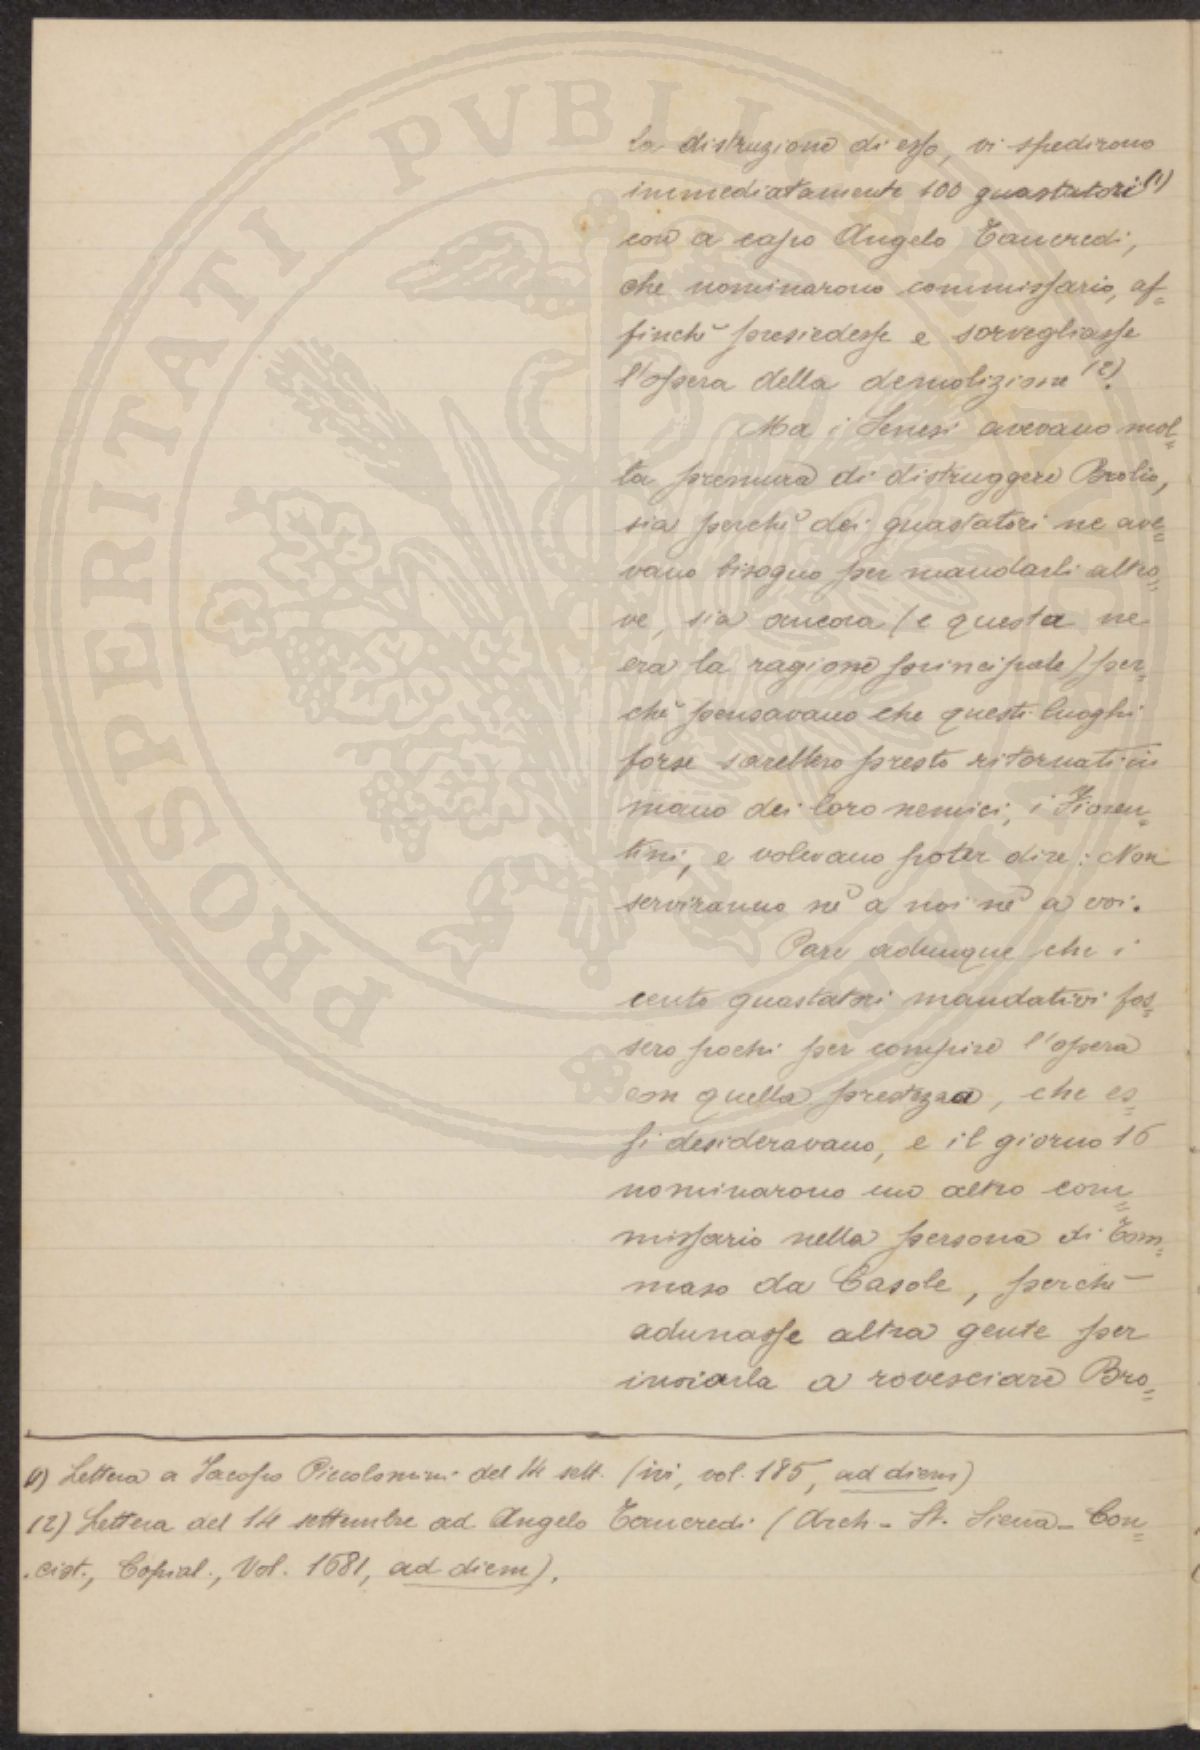 la distruzione di esso, vi spedirono
immediatamente 100 guastatori (1)
con a capo Angelo Tancredi,
che nominarono commissario, af=
finchè presiedesse e sorvegliasse
l'opera della demolizione (2).
Ma i Senesi avevano mol=
ta premura di distruggere Brolio,
sia perchè dei guastatori ne ave=
vano bisogno per mandarli altro=
ve, sia ancora (e questa ne
era la ragione principale) per=
chè pensavano che questi luoghi
forse sarebbero presto ritornati in
mano dei loro nemici, i Fioren=
tini, e volevano poter dire: Non
serviranno nè a noi nè a voi.
Pare adunque che i
cento guastatori mandativi fos=
sero pochi per compire l'opera
con quella prestezza, che es=
si desideravano, e il giorno 16
nominarono un altro com=
missario nella persona di Tom=
maso da Casole, perchè
adunasse altra gente per
inviarla a rovesciare Bro=
(1) Lettera a Jacopo Piccolomini del 14 sett. (ivi, vol. 185, ad diem)
(2) Lettera del 14 settembre ad Angelo Tancredi (Arch. St. Siena - Con=
cist., Copial., Vol. 1681, ad diem).
PROSPERITATI PVBLICAE